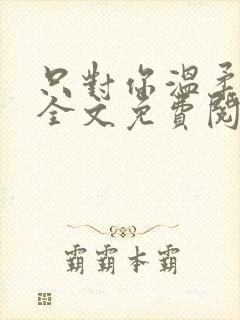 只對你溫柔
全文免費閱
霸霸本霸